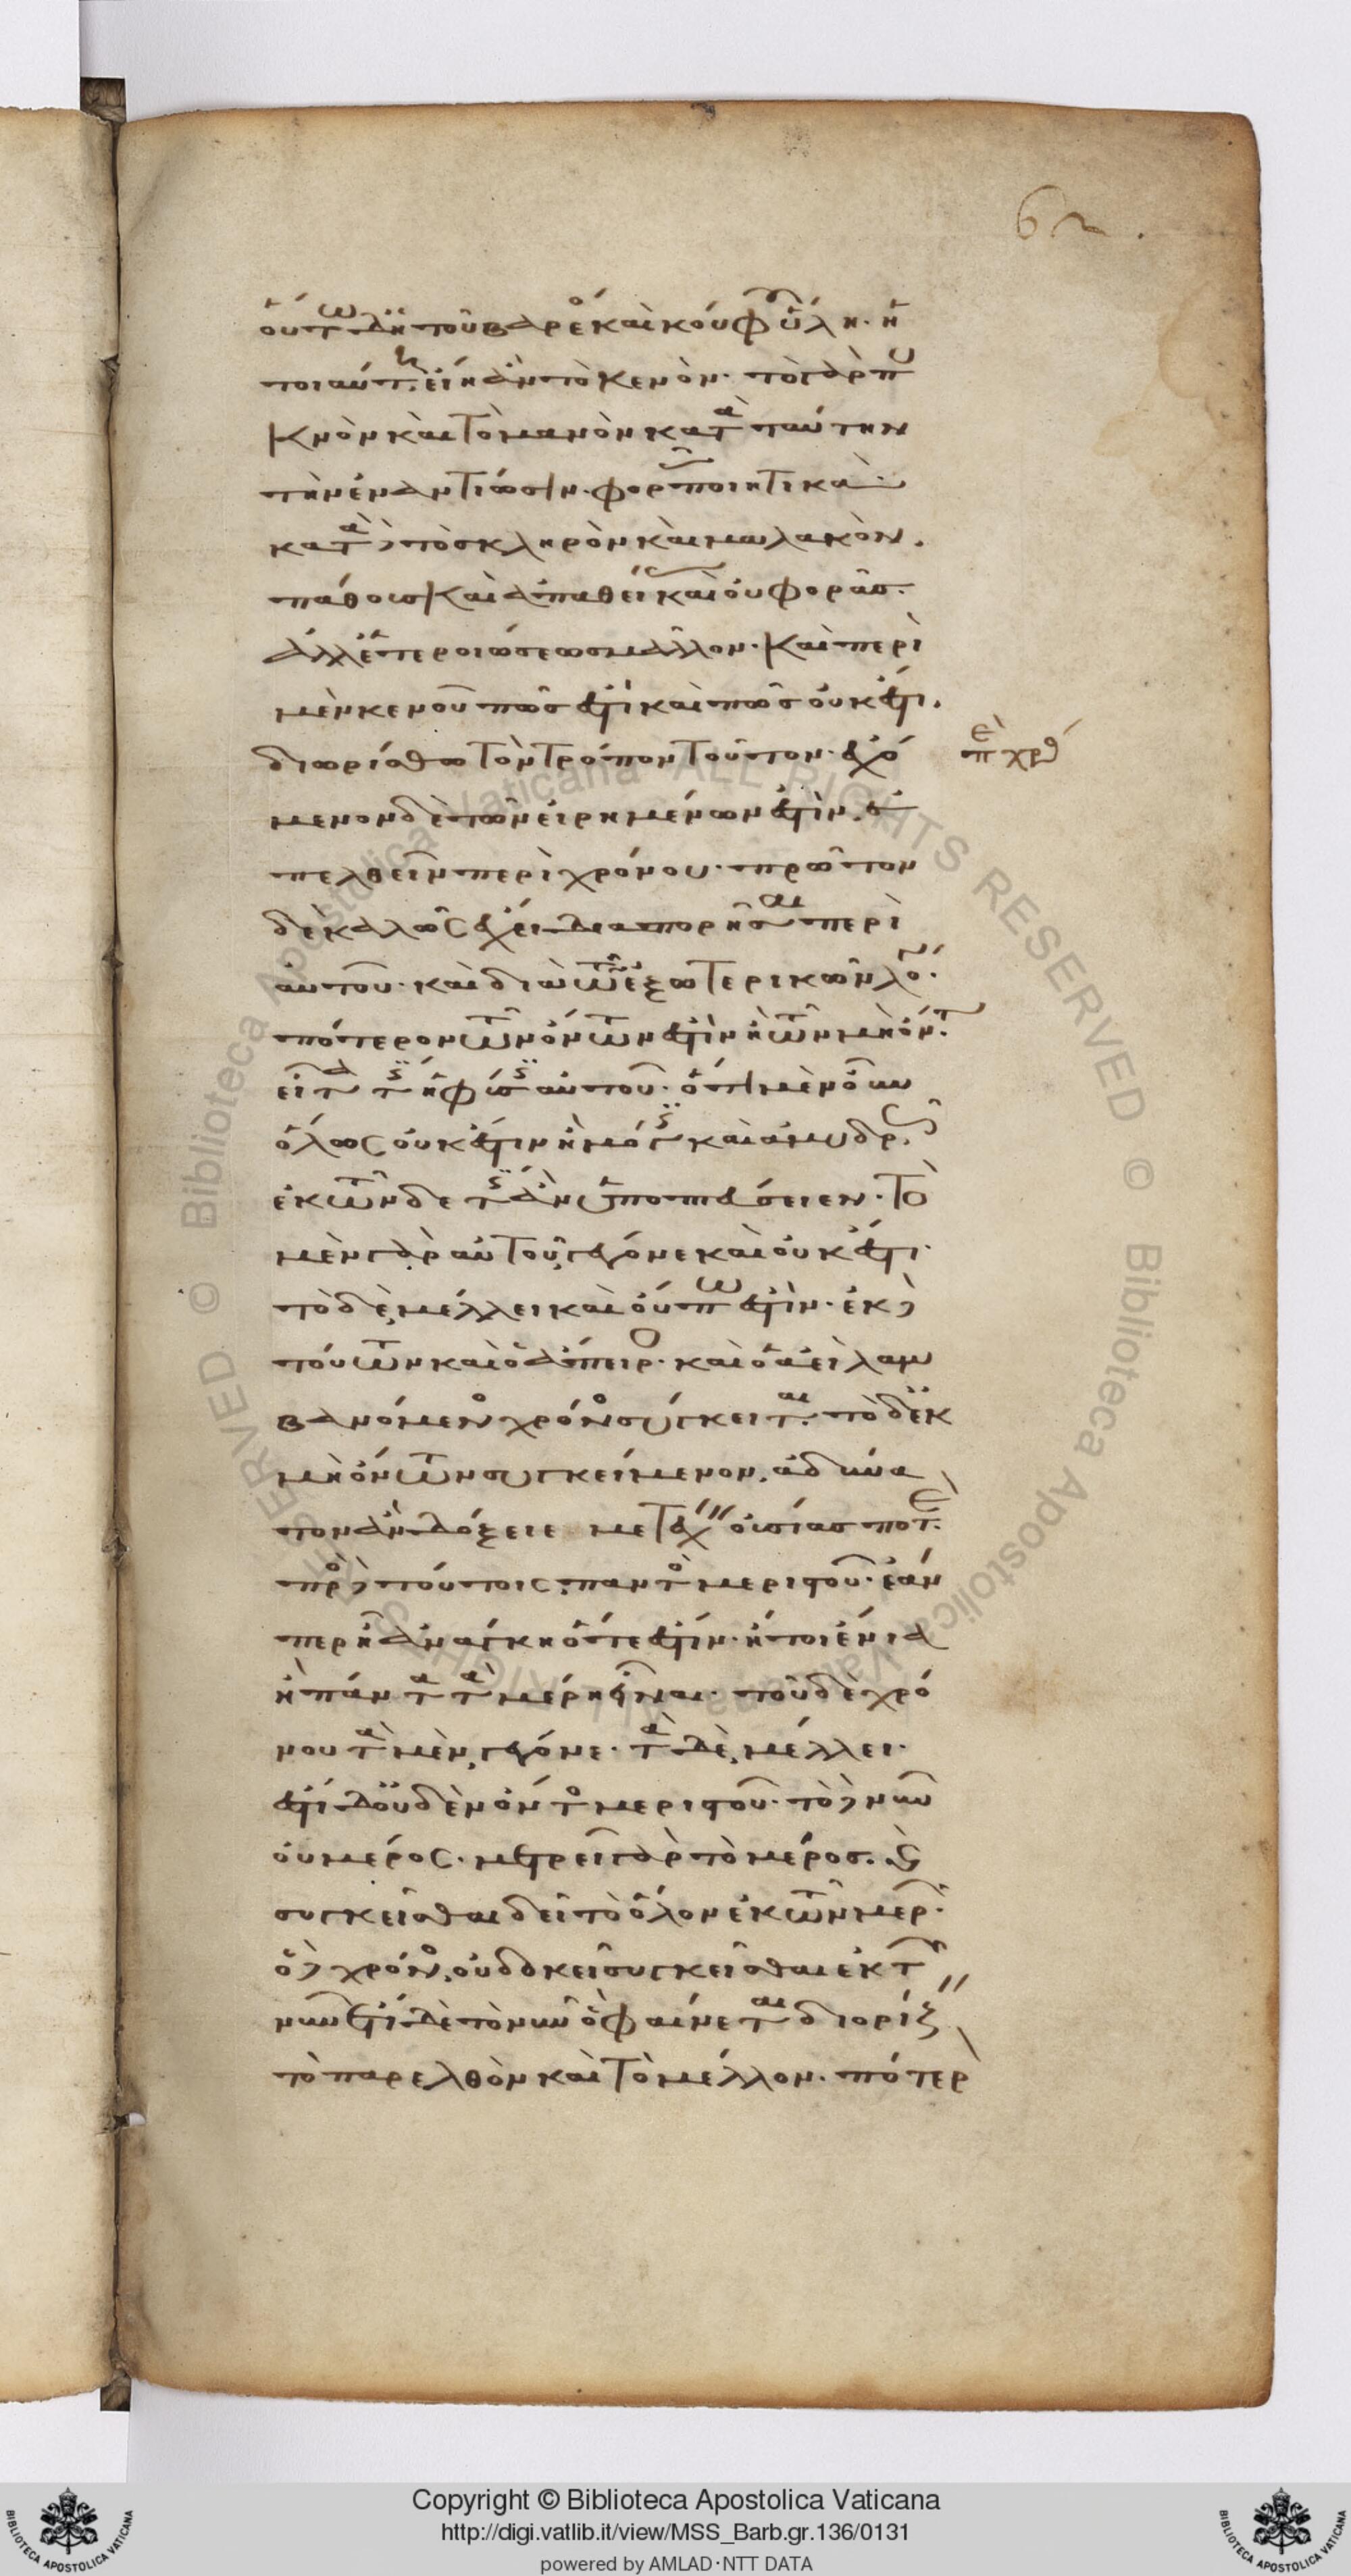 62.
οὕτω δὴ τοῦ βαρέος καὶ κούφου ὕλη· ἡ
τοιαύτη εἴη ἂν τὸ κενόν· τὸ γὰρ πυ
κνὸν καὶ τὸ μανὸν κατὰ ταύτην
τὴν ἐναντίωσιν· φορᾶς ποιητικά·
κατὰ δὲ τὸ σκληρὸν καὶ μαλακὸν.
πάθους καὶ ἀπαθείας καὶ οὐ φορᾶς.
ἀλλ' ἑτεροιώσεως μᾶλλον· καὶ περὶ
μὲν κενοῦ πῶς ἐστὶ καὶ πῶς οὐκ ἔστι.
διωρίσθω τὸν τρόπον τοῦτον· ἐχό
περὶ χρό
μενον δὲ τῶν εἰρημένων ἐστὶν. ἐ
πελθεῖν περὶ χρόνου· πρῶτον
δὲ καλῶς ἔχει διαπορῆσαι περὶ
αὐτοῦ· καὶ διὰ τῶν ἐξωτερικῶν λό·
πότερον τῶν ὄντων ἐστὶν ἢ τῶν μὴ ὄντ·
εἶτα τίς ἡ φύσις αὐτοῦ· ὅτι μὲν οὖν
ὅλως οὐκ ἔστιν ἢ μόγις καὶ ἀμυδρῶς
ἐκ τῶνδέ τις ἂν ὑποπτεύσειεν· τὸ
μὲν γὰρ αὐτοῦ, γέγονε καὶ οὐκ ἔστι·
τὸ δὲ, μέλλει καὶ οὔπω ἐστὶν· ἐκ δὲ
τούτων καὶ ὁ ἄπειρο· καὶ ὁ ἀεὶ λαμ
βανόμενος χρόνος σύγκειται· τὸ δ' ἐκ
μὴ ὄντων συγκείμενον, ἀδύνα
τον ἂν δόξειε μετέχειν οὐσίας ποτε·
πρὸς δὲ τούτοις, παντὸς μεριστοῦ· ἐάν
περ ᾖ ἀνάγκη ὅτε ἔστιν· ἤτοι ἔνια
ἢ πάντα τὰ μέρη εἶναι· τοῦ δὲ χρό
νου τὰ μὲν, γέγονε· τὰ δὲ, μέλλει·
ἔστι δ' οὐδὲν ὄντος μεριστοῦ· τὸ δὲ νῦν
οὐ μέρος· μετρεῖ γὰρ τὸ μέρος. καὶ
συγκεῖσθαι δεῖ τὸ ὅλον ἐκ τῶν μερ·
ὁ δὲ χρόνος, οὐ δοκεῖ συγκεῖσθαι ἐκ τῶν
νῦν ἔτι δὲ τὸ νῦν ὃ φαίνεται διορίζειν
τὸ παρελθὸν καὶ τὸ μέλλον· πότερ
Copyright © Biblioteca Apostolica Vaticana
http://digi.vatlib.it/view/MSS_Barb.gr.136/0131
powered by AMLAD·NTT DATA